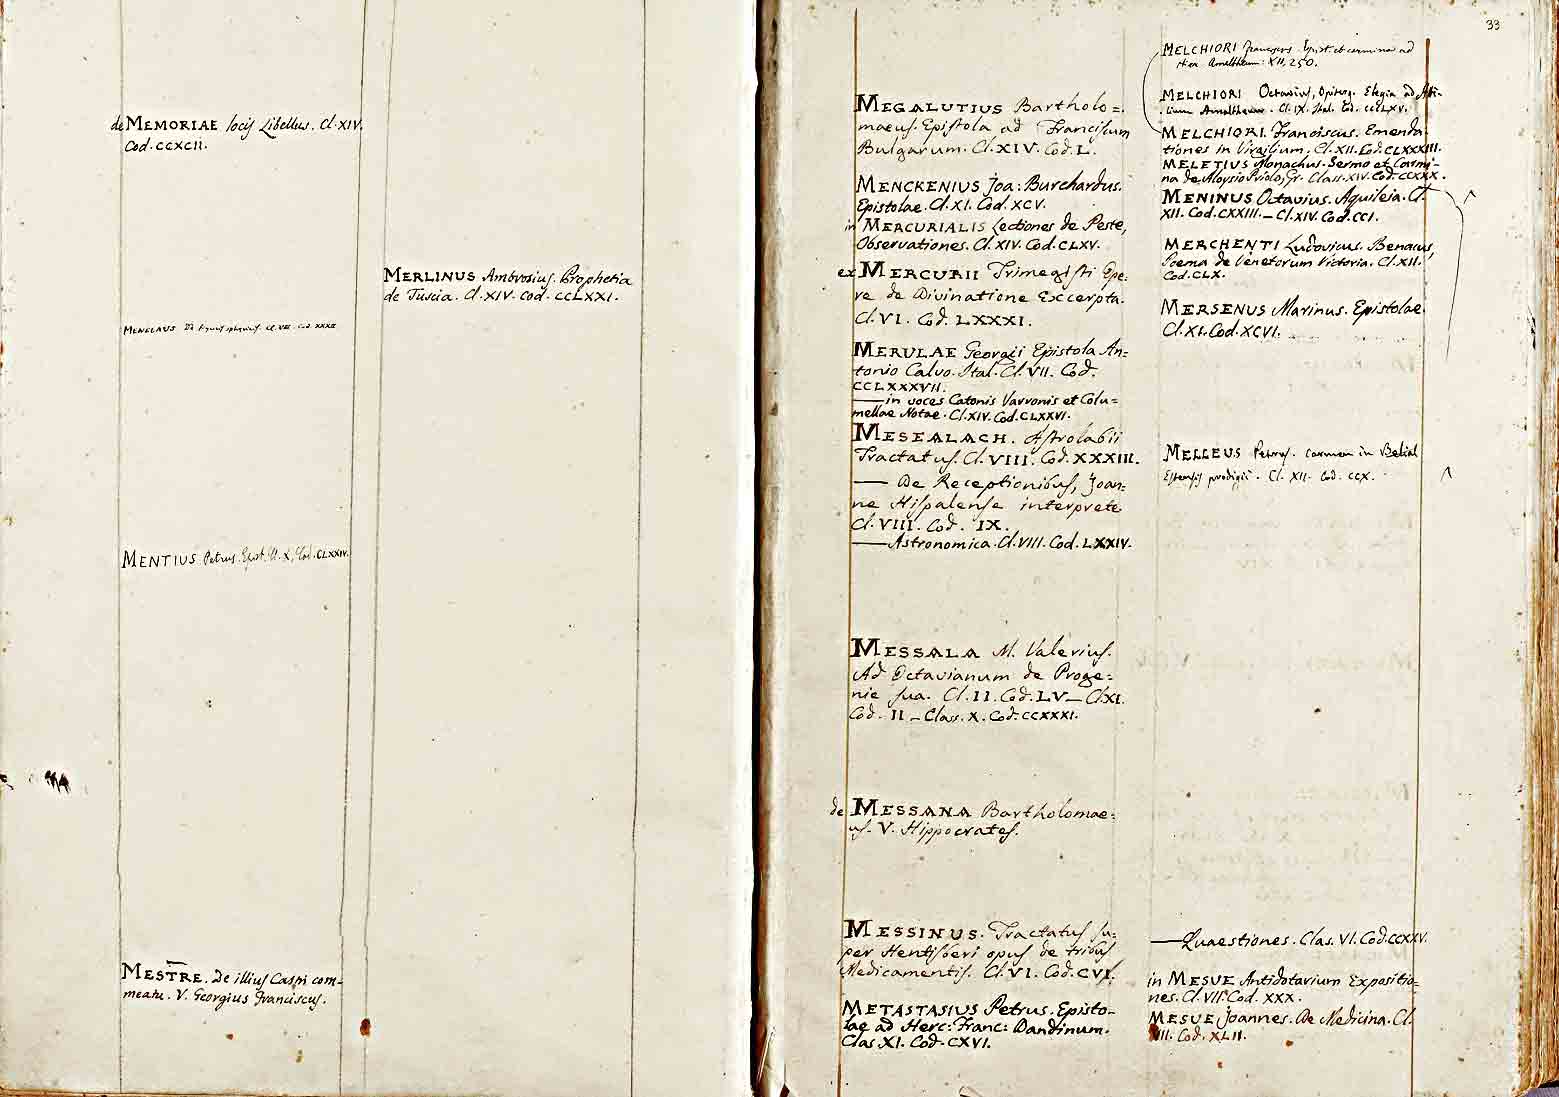 de MEMORIAE locis Libellus. Cl. XIV.
Cod. CCXCII.
MENELAUS Cl. VIII. Cod XXXII
MENTIUS Petrus. Epist. Cl. X, Cod. CLXXIV.
MESTRE. De illius Caspi com-
meatu. V. Georgius Franciscus.
MERLINUS Ambrosius. Prophetia
de Tuscia. Cl. XIV. Cod. CCLXXI.
33
MEGALUTIUS Bartholo=
maeus. Epistola ad Francisum
Bulgarum. Cl. XIV. Cod. L.
MENCKENIUS Joa: Burchardus.
Epistolae. Cl. XI. Cod. XCV.
in MERCURIALIS Lectiones de Peste,
Observationes. Cl. XIV. Cod. CLXV.
ex MERCURII Trimegisti Ope
re de Divinatione Excerpta.
Cl. VI. Cod. LXXXI.
MERULAE Georgii Epistola An=
tonio Calvo. Ital. Cl. VII. Cod.
CCLXXXVII.
— in voces Catonis Varronis et Colu=
mellae Notae. Cl. XIV. Cod. CLXXVI.
MESEALACH. Astrolabii
Tractatus. Cl. VIII. Cod. XXXIII.
— De Receptionibus, Joan=
ne Hispalense interprete
Cl. VIII. Cod. IX.
— Astronomica. Cl. VIII. Cod. LXXIV.
MESSALA M. Valerius.
Ad Octavianum de Proge=
nie sua. Cl. II. Cod. LV — Cl. XI.
Cod. II — Class. X. Cod. CCXXXI.
de MESSANA Bartholomae=
us. V. Hippocrates.
MESSINUS. Tractatus su=
per Hentisberi opus de tribus
Medicamentis. Cl. VI. Cod. CVI.
METASTASIUS Petrus. Episto-
lae ad Herc: Franc: Dandinum.
Clas XI. Cod. CXVI.
MELCHIORI Franciscus. Epist. et carmina ad
Amaltheum: XII, 250.
MELCHIORI Octavius, Opiterg. Elegia ad Atti-
lium Amaltheum. Cl. IX. Ital. Cod. CCCLXV.
MELCHIORI. Franciscus. Emenda-
tiones in Virgilium. Cl. XII. Cod. CLXXXIII.
MELETIUS Monachus. Sermo et Carmi-
na de Aloysio Priolo, Gr. Class. XIV. Cod. CCXXX.
MENINUS Octavius. Aquileia. Cl.
XII. Cod. CXXIII. — Cl. XIV. Cod. CCI.
MERCHENTI Ludovicus. Benacus,
Poema de Venetorum Victoria. Cl. XII.
Cod. CLX.
MERSENUS Marinus. Epistolae.
Cl. XI. Cod. XCVI.
MELLEUS Petrus. Carmen in Belial
Estensis prodigii. Cl. XII. Cod. CCX.
— Quaestiones. Clas. VI. Cod. CCXXV.
in MESUE Antidotarium Expositio=
nes. Cl. VII. Cod. XXX.
MESUE Joannes. De Medicina. Cl.
Cod. XLII.